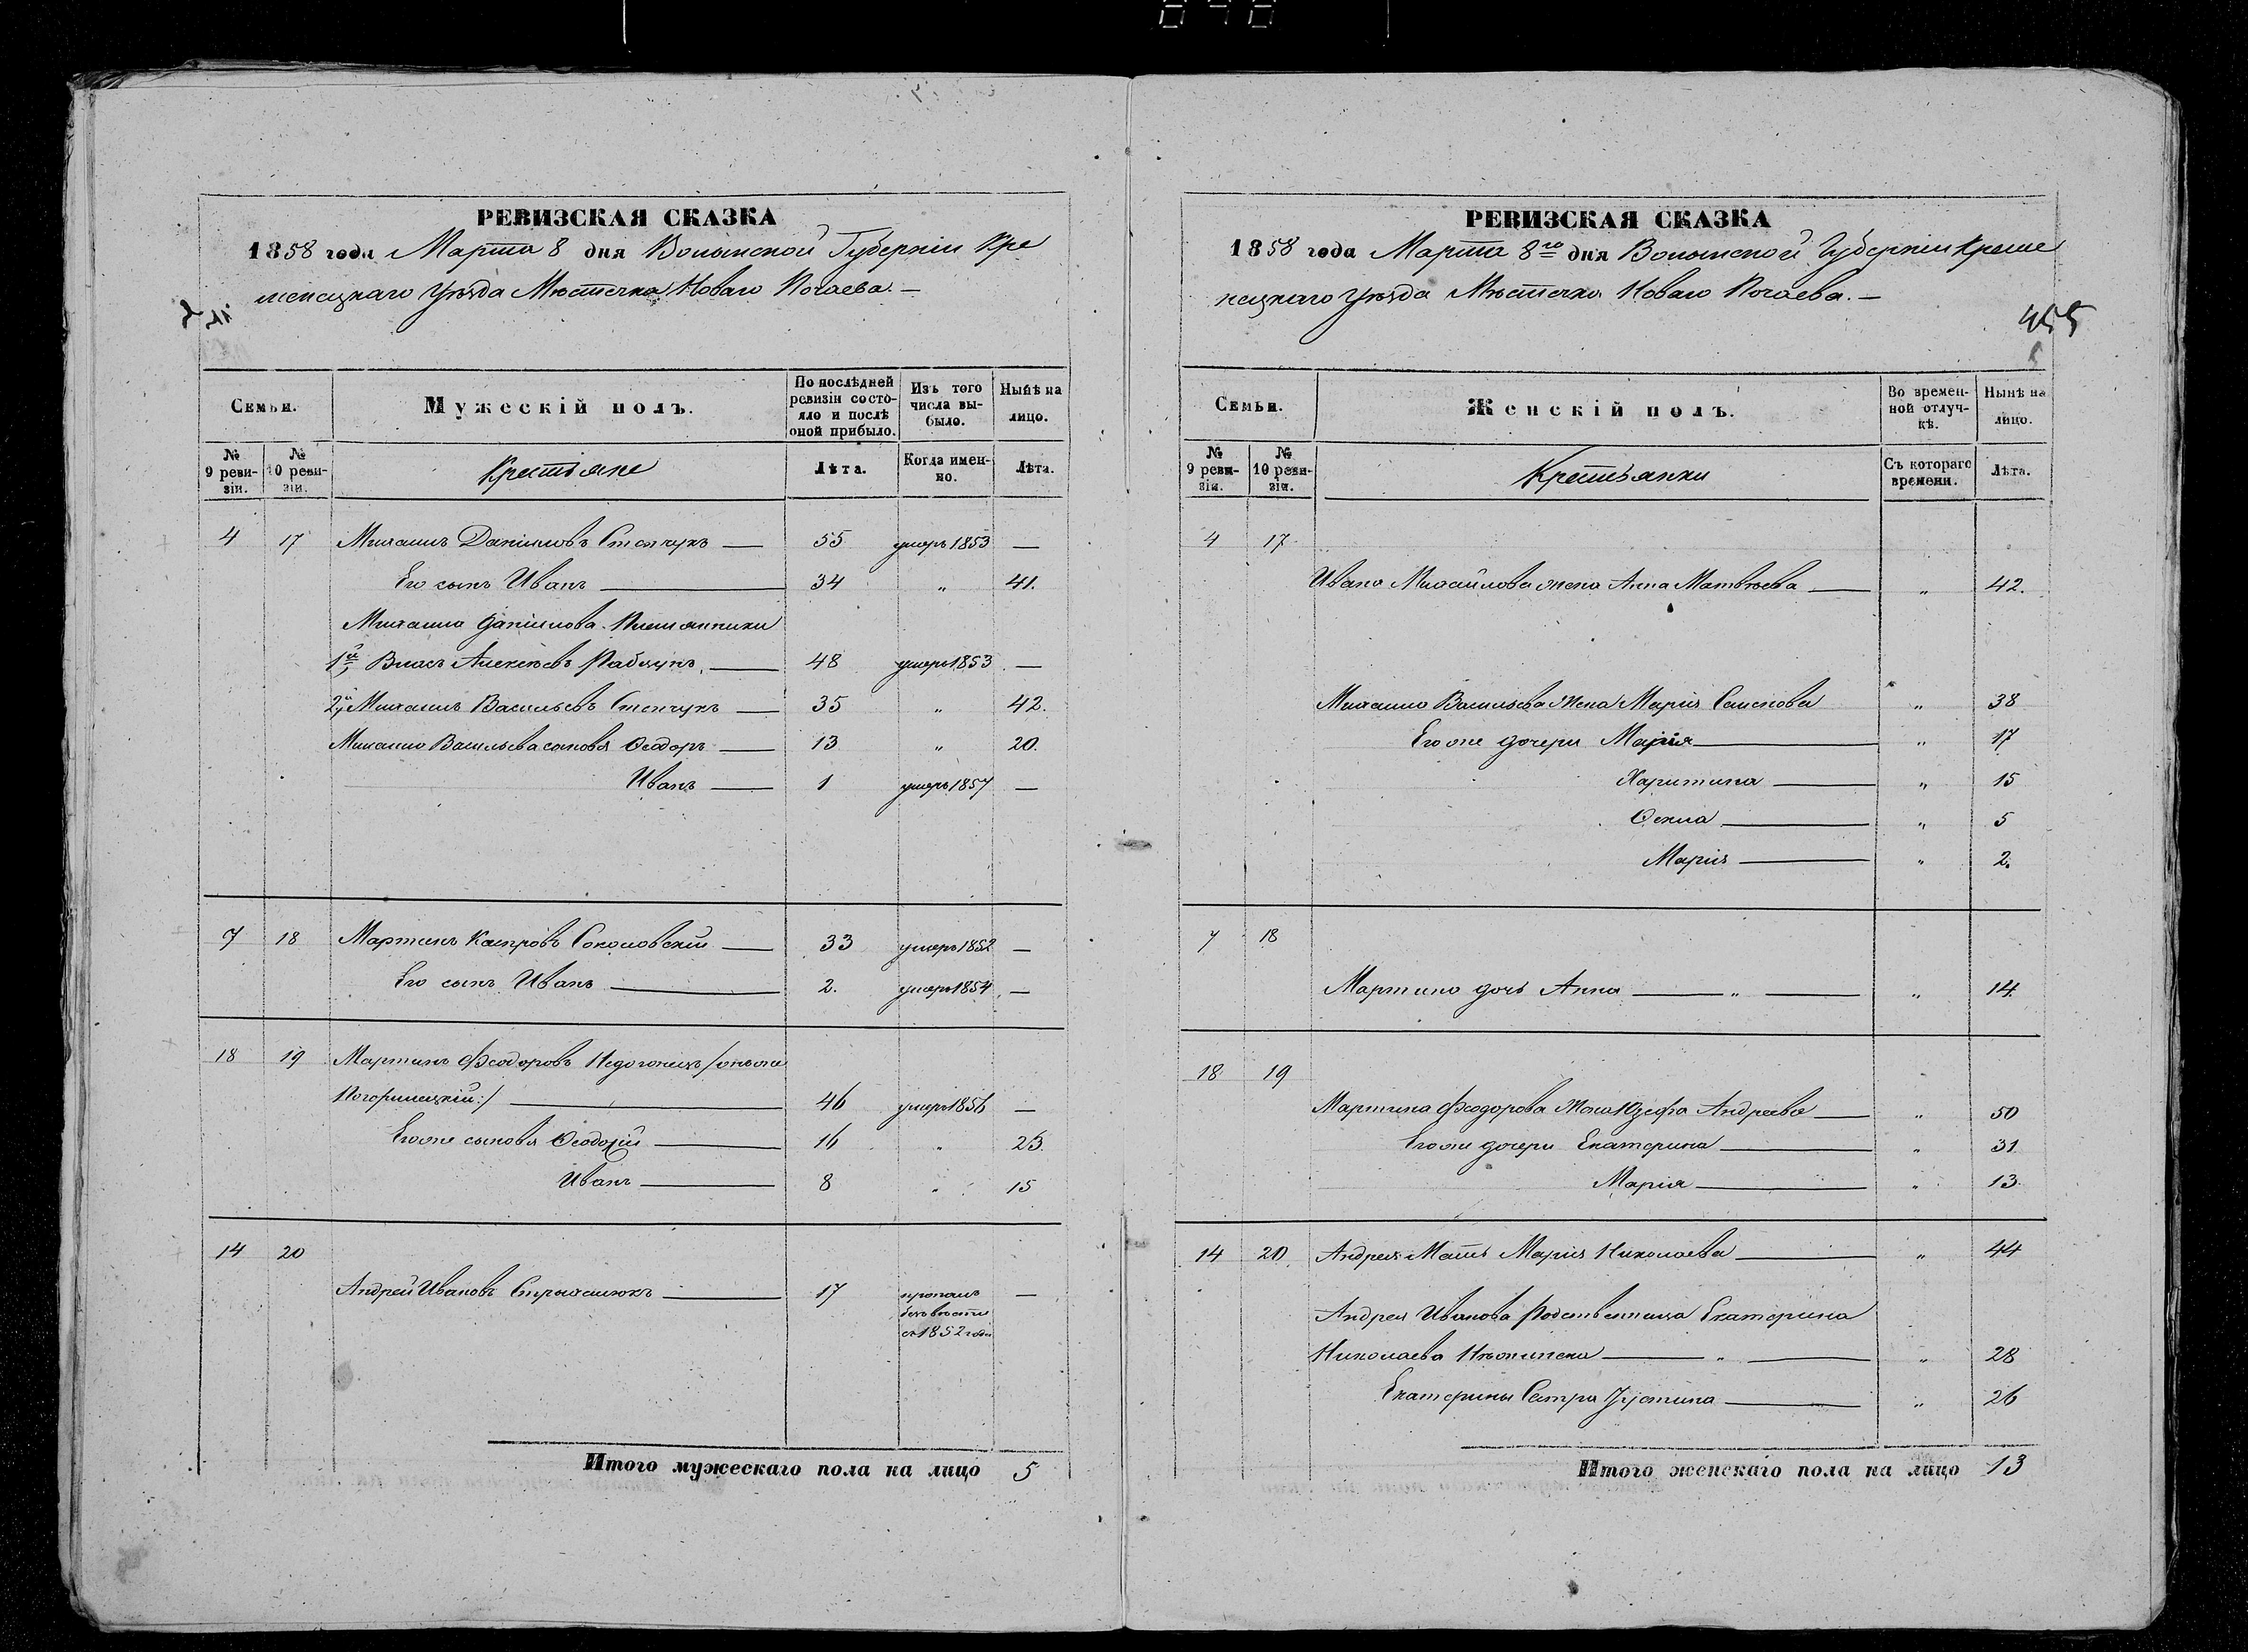 РЕВИЗСКАЯ СКАЗКА
1858 года Марта 8 дня Волынской Губерніи Кре
менецкаго Уѣзда Мѣстечка Новаго Почаева. —
Семьи.
Мужескій полъ.
По послѣдней ревизіи состояло и послѣ оной прибыло.
Изъ того числа выбыло.
Нынѣ на лицо.
№ 9 ревизіи.
№ 10 ревизіи.
Крестьяне
Лѣта.
Когда именно.
Лѣта.
4 17 Михаилъ Даніиловъ Стспчукъ — 55 умеръ 1853 —
Его сынъ Иванъ — 34 „ 41.
Михаила Даніилова Племянники
1й Власъ Алексѣевъ Рабчукъ — 48 умеръ 1853 —
2й Михаилъ Васильевъ Степчукъ — 35 „ 42.
Михаила Васильева сыновья Ѳеодоръ — 13 „ 20.
Иванъ — 1 умеръ 1857 —
7 18 Мартинъ Каспровъ Соколовскій — 33 умеръ 1852 —
Его сынъ Иванъ — 2. умеръ 1854 —
18 19 Мартинъ Феодоровъ /онъ же
46 умеръ 1856 —
Его же сыновья Ѳеодосій — 16 „ 23.
Иванъ — 8 „ 15
14 20
Андрей Ивановъ — 17 пропалъ —
безъ вѣсти
съ 1852 года
Итого мужескаго пола на лицо 5
РЕВИЗСКАЯ СКАЗКА
1858 года Марта 8го дня Волынской Губерніи Креме
нецкаго Уѣзда Мѣстечка Новаго Почаева. —
455
Семьи.
Женскій полъ.
Во временной отлучкѣ.
Нынѣ на лицо.
№ 9 ревизіи.
№ 10 ревизіи.
Крестьянки
Съ котораго времени.
Лѣта.
4 17
Ивана Михайлова жена Анна Матвѣева — „ 42.
Михаила Васильева Жена Марія Семенова „ 38
Его же дочери Марія — „ 17
Харитина — „ 15
„ 5
Марія — „ 2.
7 18
Мартина дочь Анна — „ — „ 14.
18 19
Мартина Феодорова Жена Юзефа Андреева — „ 50
Его же дочери Екатерина — „ 31
Марія — „ 13.
14 20. Андрея Мать Марія Николаева — „ 44
Андрея Иванова Родственница Екатерина
Николаева — „ — „ 28
Екатерины Сестра Іустина — „ 26
Итого женскаго пола на лицо 13